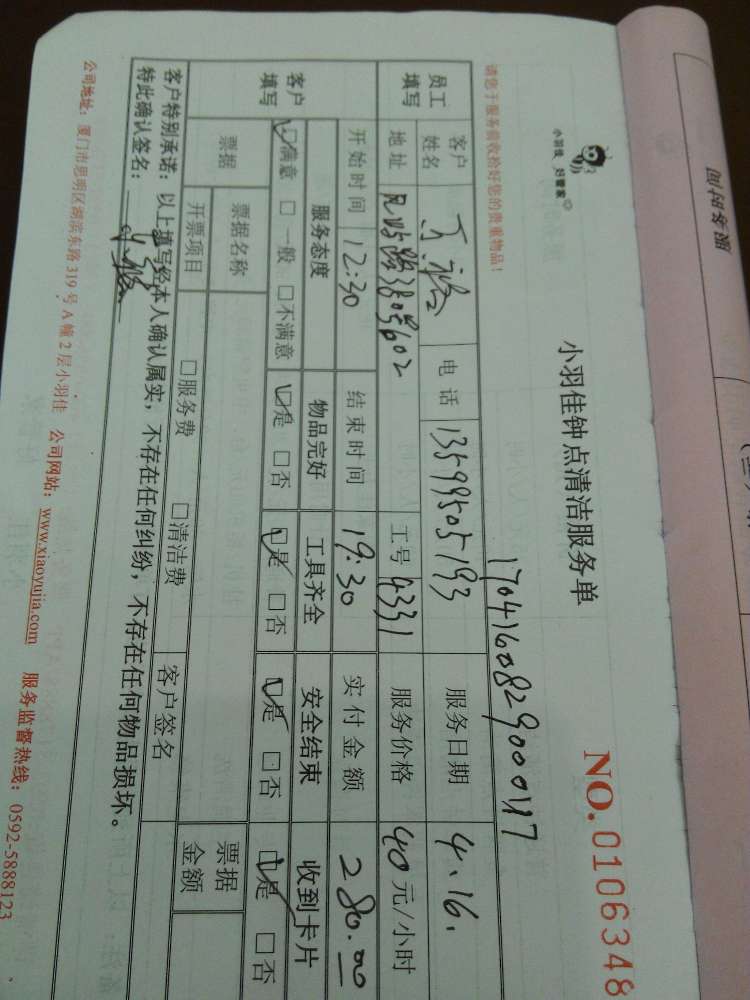 小羽佳 好管家
小羽佳钟点清洁服务单
NO.0106348
请您于服务前收检好您的贵重物品！
员工填写
客户姓名
电话 13599505193
服务日期 4.16.
地址
工号 4331
服务价格 40元/小时
开始时间 12:30
结束时间 19:30
实付金额 280.00
客户填写
服务态度 物品完好 工具齐全 安全结束 收到卡片
☑满意 □一般 □不满意 ☑是 □否 ☑是 □否 ☑是 □否 ☑是 □否
票据
票据名称
票据金额
开票项目 □服务费 □清洁费 客户签名
客户特别承诺：以上填写经本人确认属实，不存在任何纠纷，不存在任何物品损坏。
特此确认签名：
公司地址：厦门市思明区湖滨东路319号A幢2层小羽佳 公司网站：www.xiaoyujia.com 服务监督热线：0592-5888123